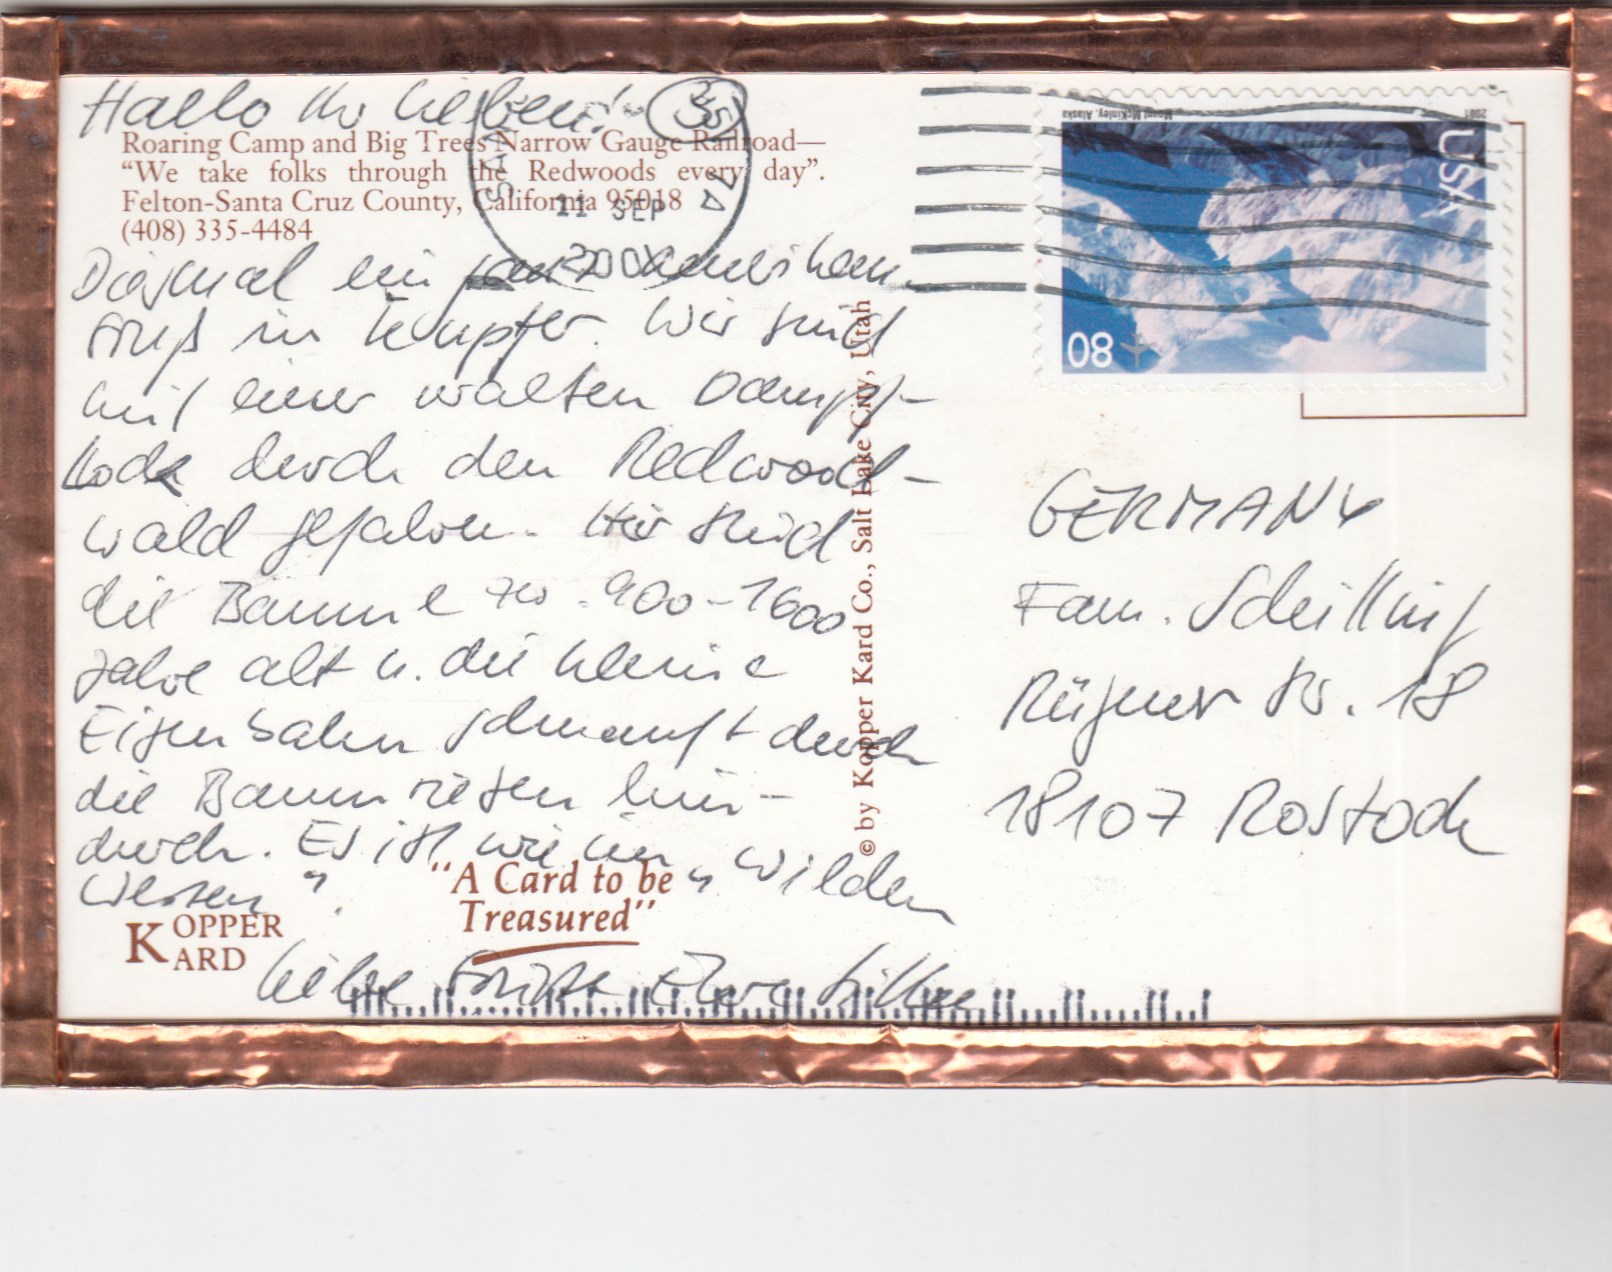 Hallo Ihr Lieben! 35
Roaring Camp and Big Trees Narrow Gauge Railroad—
“We take folks through the Redwoods every day”.
Felton-Santa Cruz County, California 95018
(408) 335-4484
Diesmal ein
Gruß in Kupfer. Wir sind
mit einer uralten Dampf-
lock durch den Redwood-
wald gefahren. Hier sind
die Bäume zw. 900-1600
Jahre alt u. die kleine
Eisenbahn schnauft durch
die Baumriesen hin-
durch. Es ist wie im „Wilden
Westen“.
Liebe Grüße Eure Silke
KOPPER
KARD
“A Card to be
Treasured”
© by Kopper Kard Co., Salt Lake City, Utah
11 SEP
Mount McKinley, Alaska
2001
USA
80
GERMANY
Fam. Schilling
Rügner Str. 18
18107 Rostock